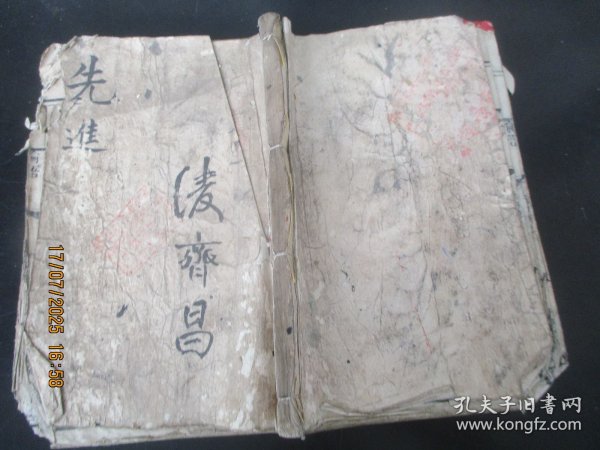 先進
凌齊昌
17/07/2025 16:58
孔夫子旧书网
www.kongfz.com